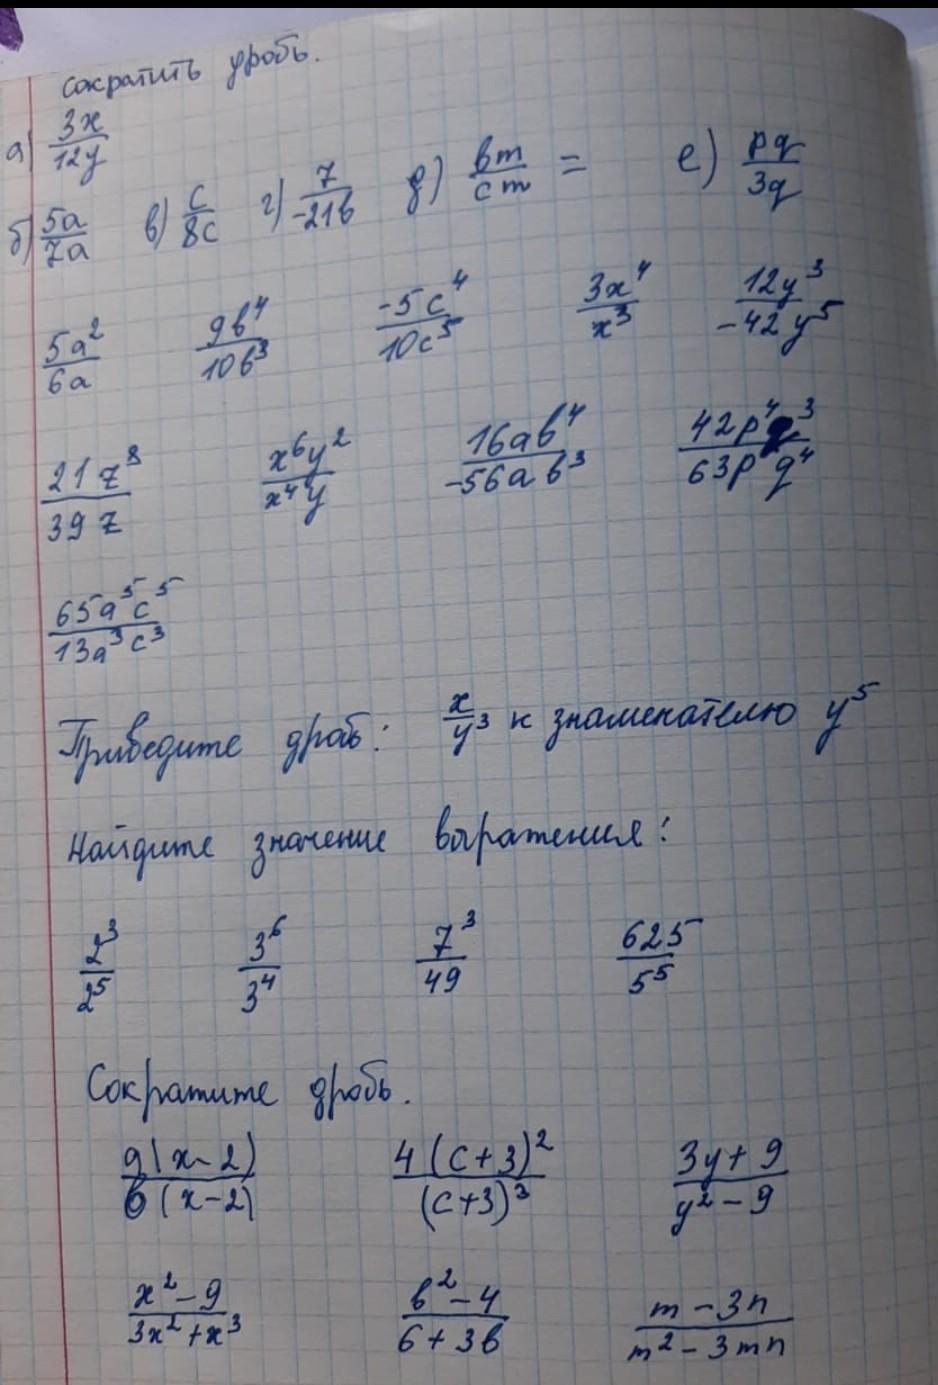 сократить дробь.
а) 3x/12y
б) 5a/7a в) c/8c г) 7/-21b д) bm/cm = е) pq/3q
5a²/6a 9b⁴/10b³ -5c⁴/10c⁵ 3x⁴/x³ 12y³/-42y⁵
21z⁸/39z x⁶y²/x⁴y 16ab⁴/-56ab³ 42p⁴q³/63p³q⁴
65a⁵c⁵/13a³c³
Приведите дробь: x/y³ к знаменателю y⁵
Найдите значение выражения:
2³/2⁵ 3⁶/3⁴ 7³/49 625/5⁵
Сократите дробь.
9(x-2)/6(x-2) 4(c+3)²/(c+3)³ 3y+9/y²-9
x²-9/3x²+x³ b²-4/6+3b m-3n/m²-3mn